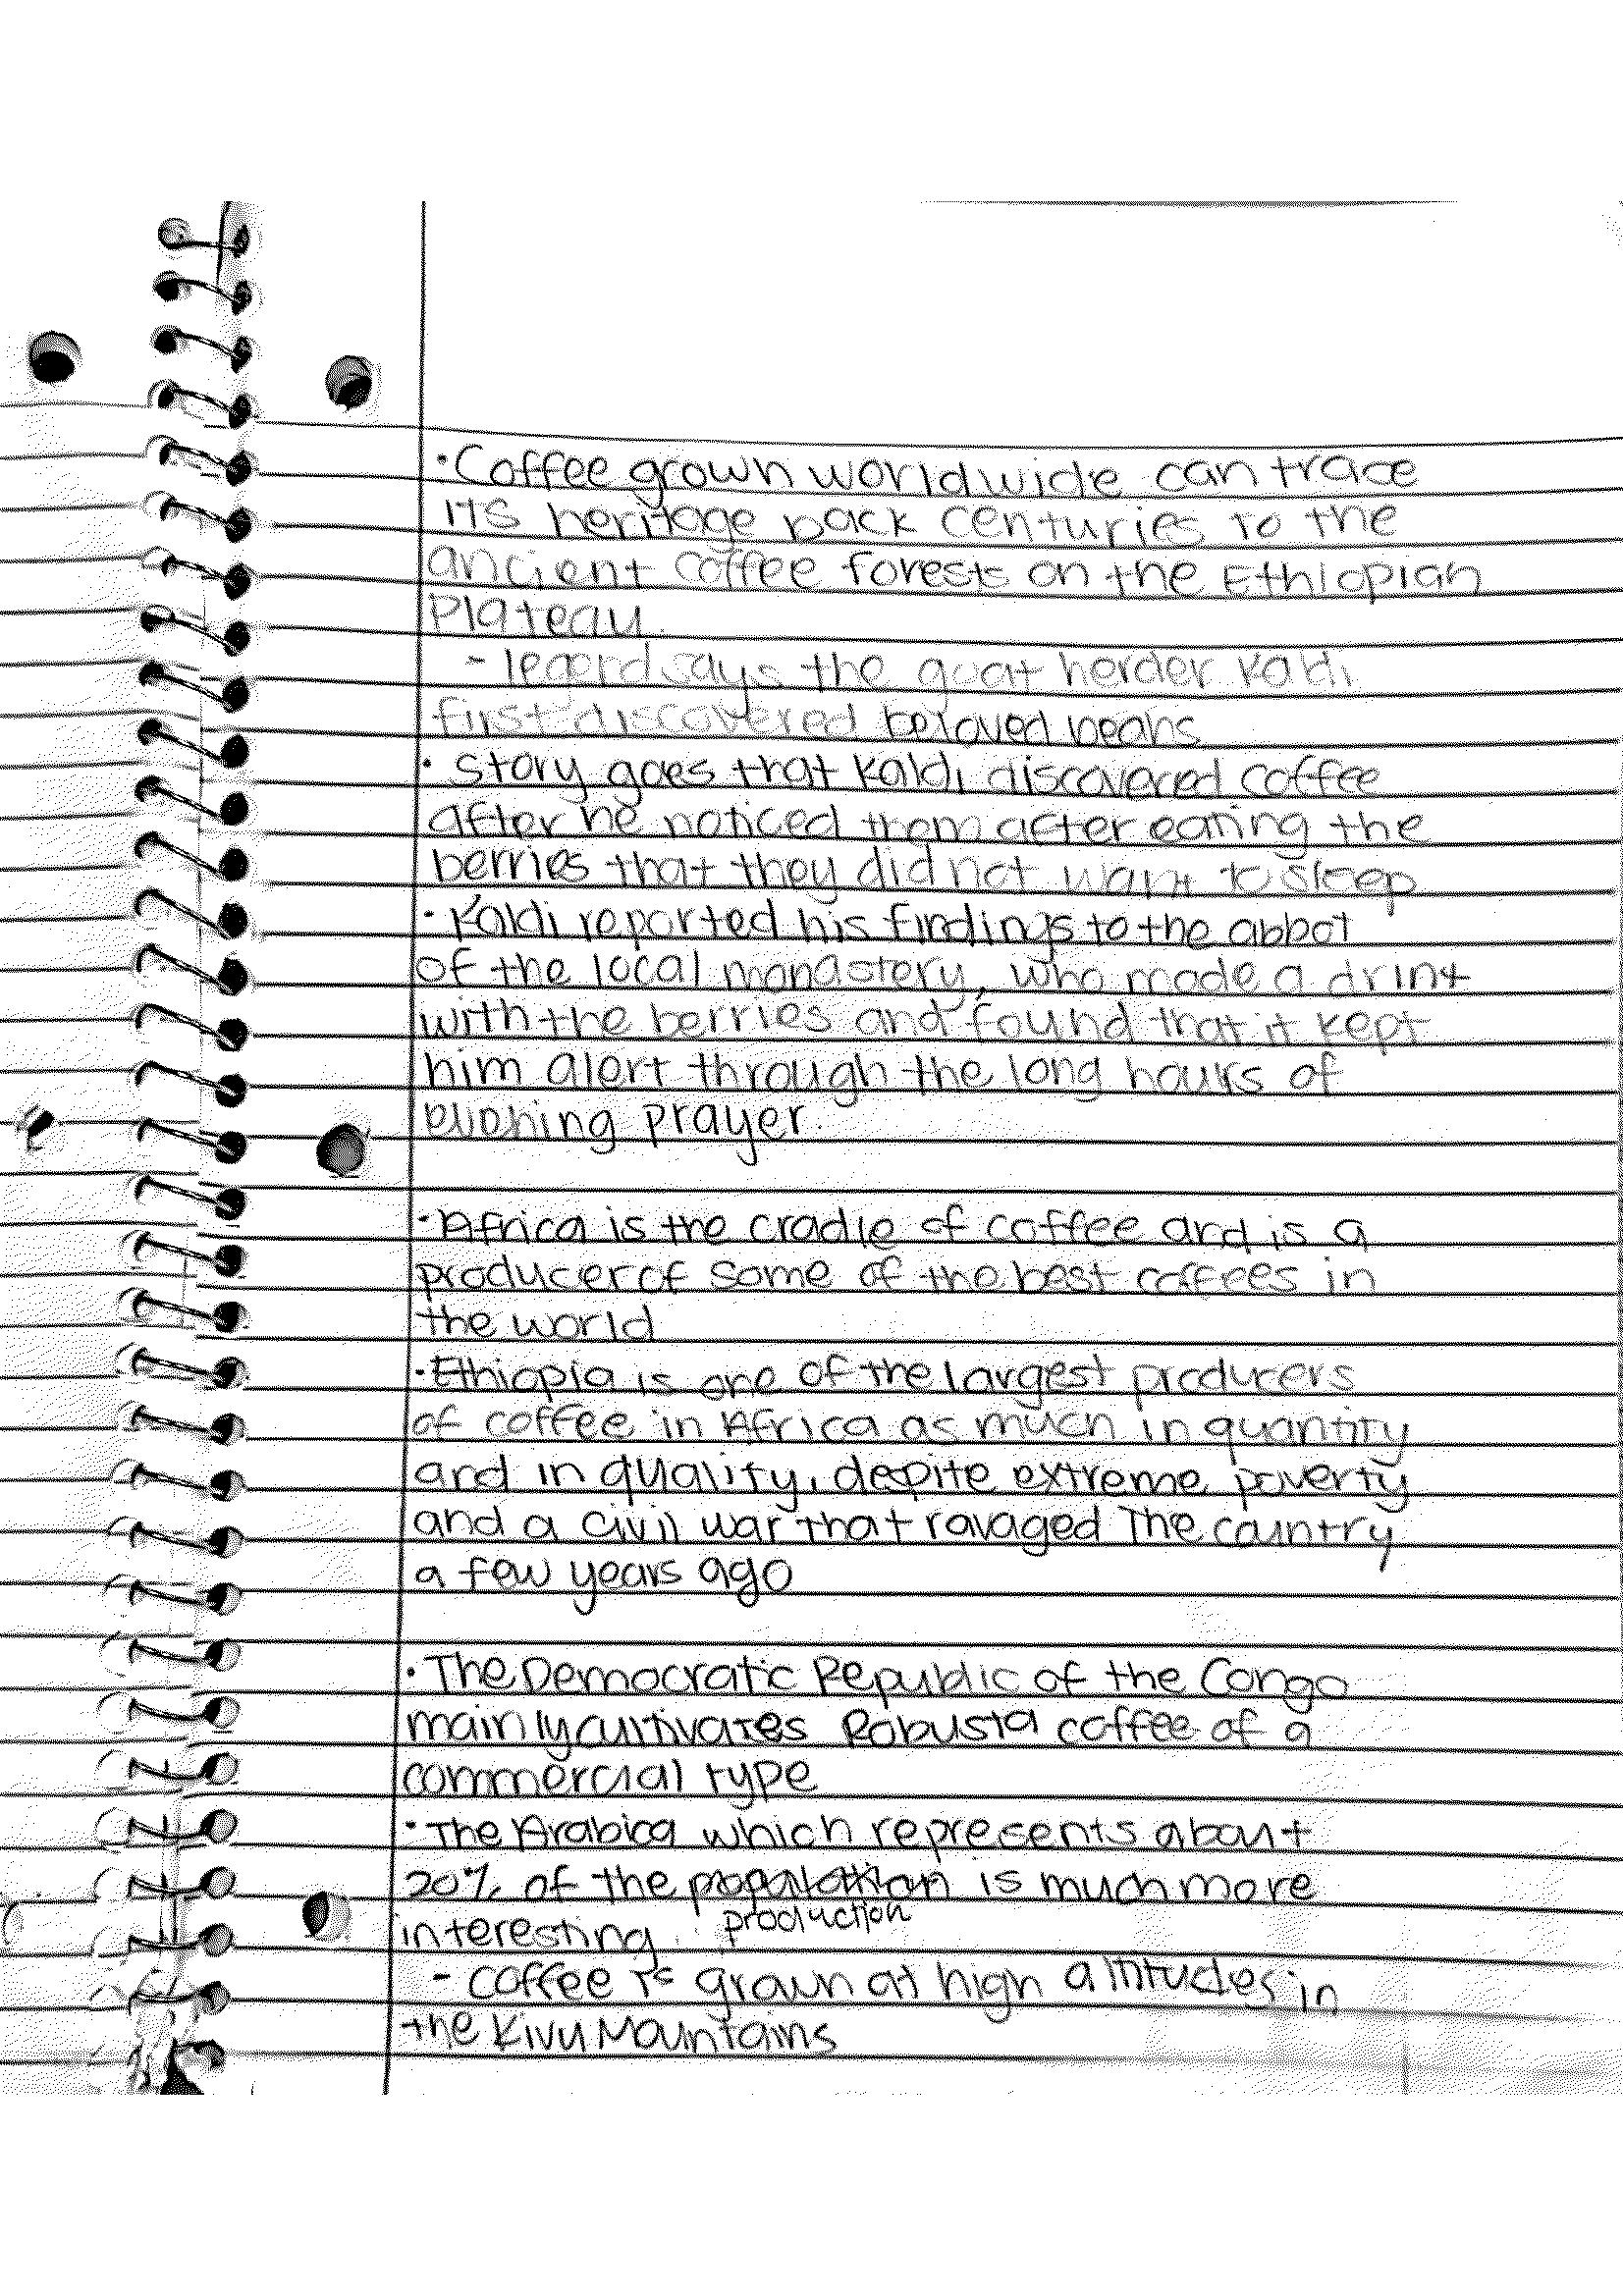 · Coffee grown worldwide can trace
its heritage back centuries to the
ancient coffee forests on the Ethiopian
Plateau.
- legend says the goat herder Kaldi
first discovered beloved beans
· Story goes that Kaldi discovered coffee
after he noticed them after eating the
berries that they did not want to sleep
· Kaldi reported his findings to the abbot
of the local monastery, who made a drink
with the berries and found that it kept
him alert through the long hours of
evening prayer.
· Africa is the cradle of coffee and is a
producer of some of the best coffees in
the world
· Ethiopia is one of the largest producers
of coffee in Africa as much in quantity
and in quality, despite extreme poverty
and a civil war that ravaged The country
a few years ago
· The Democratic Republic of the Congo
mainly cultivates Robusta coffee of a
commercial type
· The Arabica which represents about
20% of the population is much more
interesting. production
- Coffee is grown at high altitudes in
the Kivu Mountains